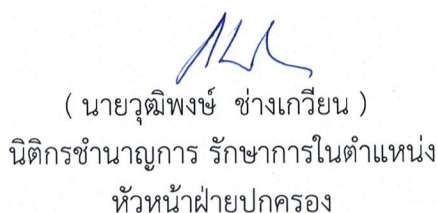 ( นายวุฒิพงษ์ ช่างเกวียน )
นิติกรชำนาญการ รักษาการในตำแหน่ง
หัวหน้าฝ่ายปกครอง